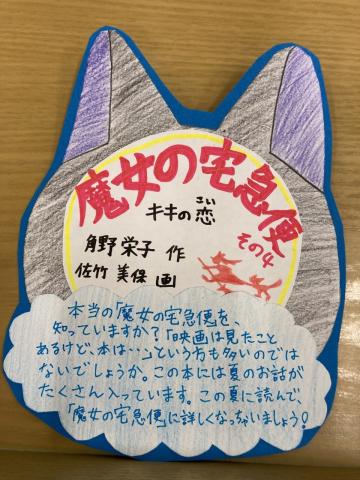 魔女の宅急便
その4
キキの恋
こい
角野 栄子 作
佐竹 美保 画
本当の「魔女の宅急便」を
知っていますか?「映画は見たこと
あるけど、本は…」という方も多いのでは
ないでしょうか。この本には夏のお話が
たくさん入っています。この夏に読んで、
「魔女の宅急便」に詳しくなっちゃいましょう!